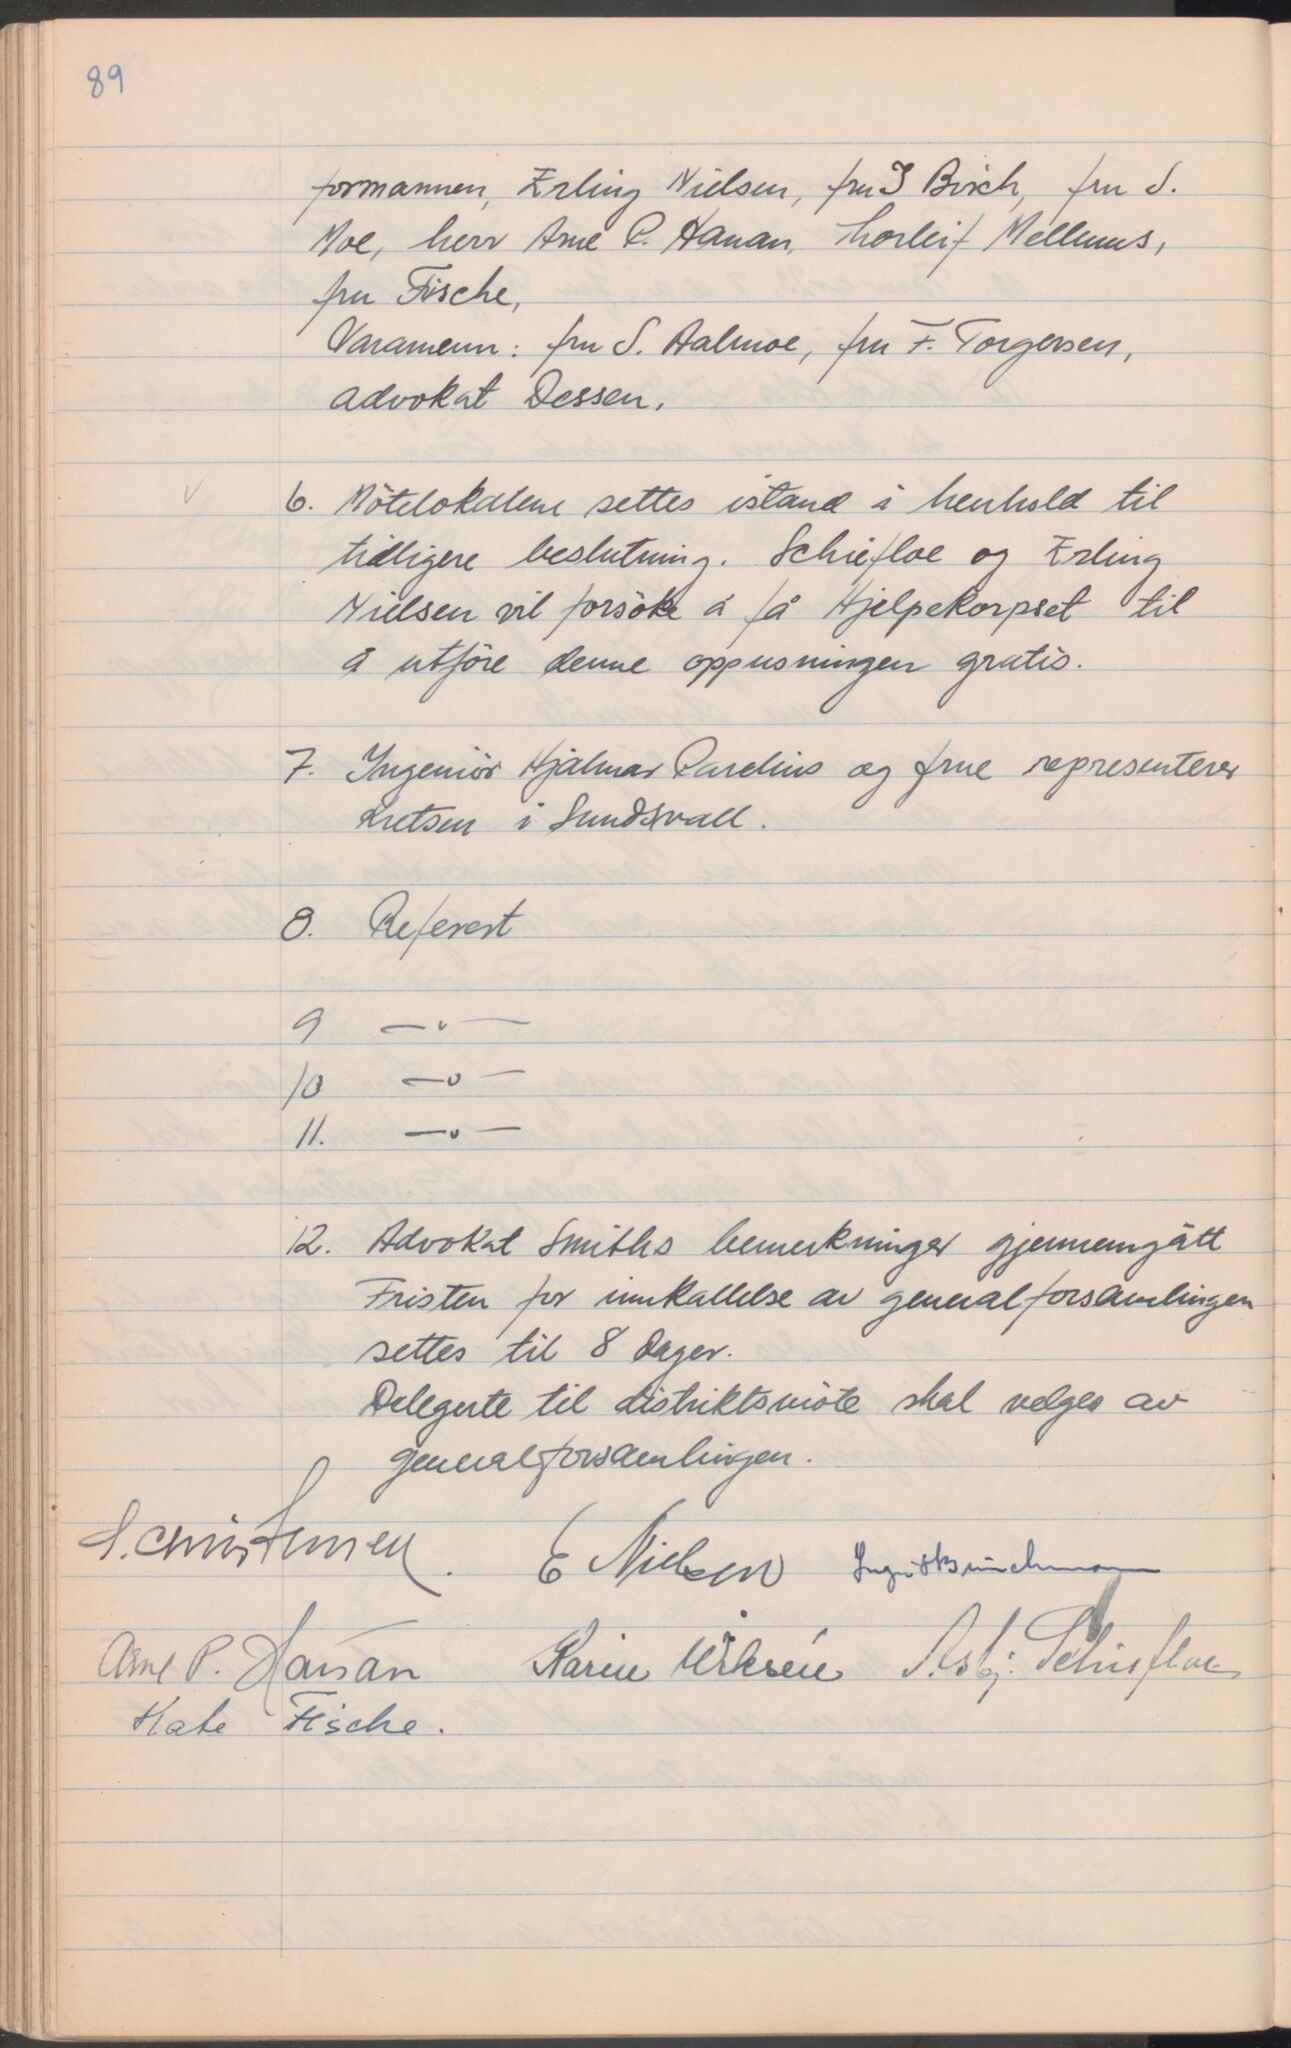 89
formannen, Erling Nielsen, fru I Birch, fru S.
Moe, herr Arne P. Hanan, Thorleif Mellums,
fru Fische,
Varamenn: fru S. Aalmoe, fru F. Torgersen,
advokat Dessen.
6. Mötelokalene settes istand i henhold til
tidligere beslutning. Schiefloe og Erling
Nielsen vil forsöke å få Hjelpekorpset til
å utföre denne oppusningen gratis.
7. Ingeniör Hjalmar Pardius og frue representerer
kretsen i Sundsvall.
8. Referert
9 —"—
10 —"—
11. —"—
12. Advokat Smiths bemerkninger gjennemgått
Fristen for innkallelse av generalforsamlingen
settes til 8 dager.
Delegerte til distriktsmöte skal velges av
generalforsamlingen.
S. Christensen. E Nielsen
Arne P. Hanan Karen Eriksen Asbj. Schiefloe
Kate Fische.